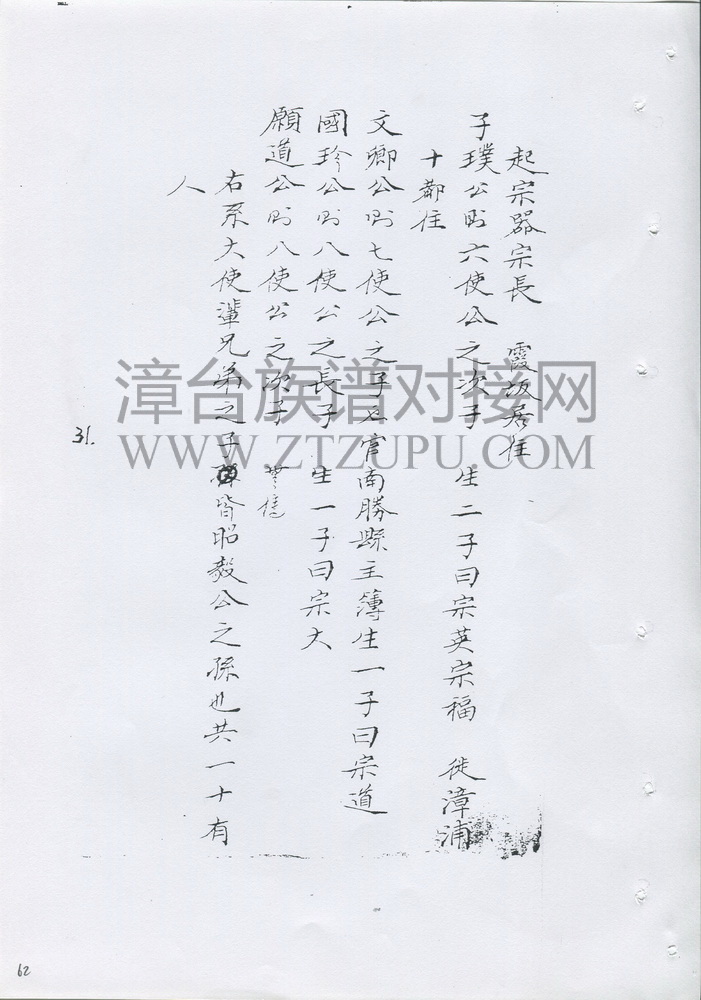 起宗器宗長 霞坂居住
子璞公則六使公之次子 生二子曰宗英宗福 徙漳浦
十都住
文卿公則七使公之子也官南勝縣主簿生一子曰宗道
國珍公則八使公之長子 生一子曰宗大
願道公則八使公之次子
右系大使輩兄弟之子皆昭毅公之孫也共一十有
人
31.
漳台族谱对接网
WWW.ZTZUPU.COM
62